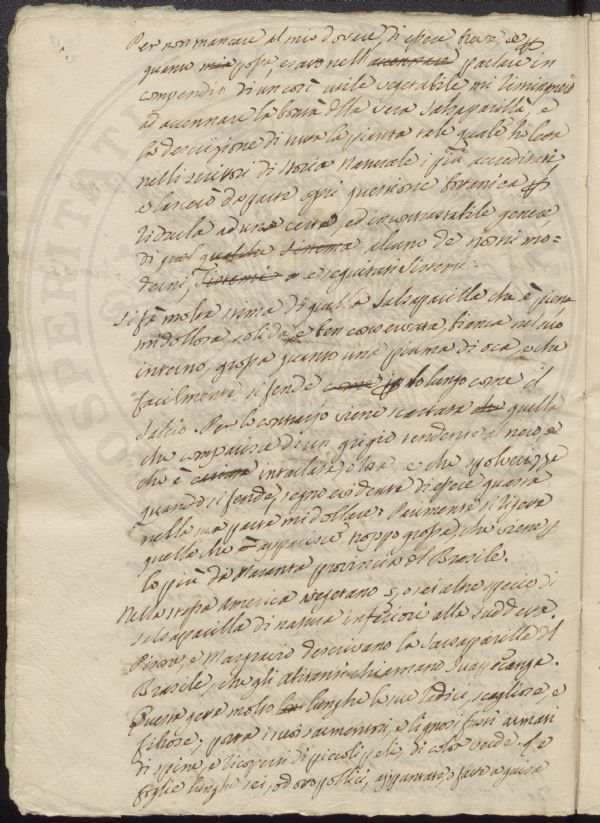 Per non mancare al mio dovere di esser breve, e
quanto mia possa, esatto nell' parlare in
compendio di un così utile vegetabile mi ristringerò
ad accennare la bontà della vera Salsapariglia, e
la descrizione di tutta la pianta tale quale si legge
nelli scrittori di storia Naturale i più accreditati
e lascerò da parte ogni questione botanica per
ridurla ad una certa, ed incontrastabile genere
di qual qualche sistema alcuno de nostri mo-
derni, Sistemi e seguitati sistemi.
Si fà molta stima di quella Salsapariglia che è piena
midollosa solida, e ben conservata, bianca nel suo
interno, grossa quanto una piuma di oca, e che
facilmente si fende come in lo lungo come il
salcio. Per lo contrario viene scartata quella
che comparisce di un grigio tendente al nero, e
che è intarlata, e che spolverizza
quando si fende, segno evidente di essere guasta
nella sua parte midollare. Parimente si rigetta
quella che apparisce troppo grossa, che viene per
lo più da provincia del Brasile.
Nella stessa America vegetano 5, o sei altre specie di
salsapariglia di natura inferiori alla suddetta.
Pisone, e Margravio descrivono la Salsapariglia del
Brasile, che gli abitanti chiamano
Questa getta molto lunghe le sue radici, scagliose, e
fibrose; porta i suoi sarmentosi, e lignosi fusti armati
di spine, e ricoperti di piccoli peli, di color verde. Le
foglie lunghe sei, od otto pollici, appuntate, e fatte a guisa